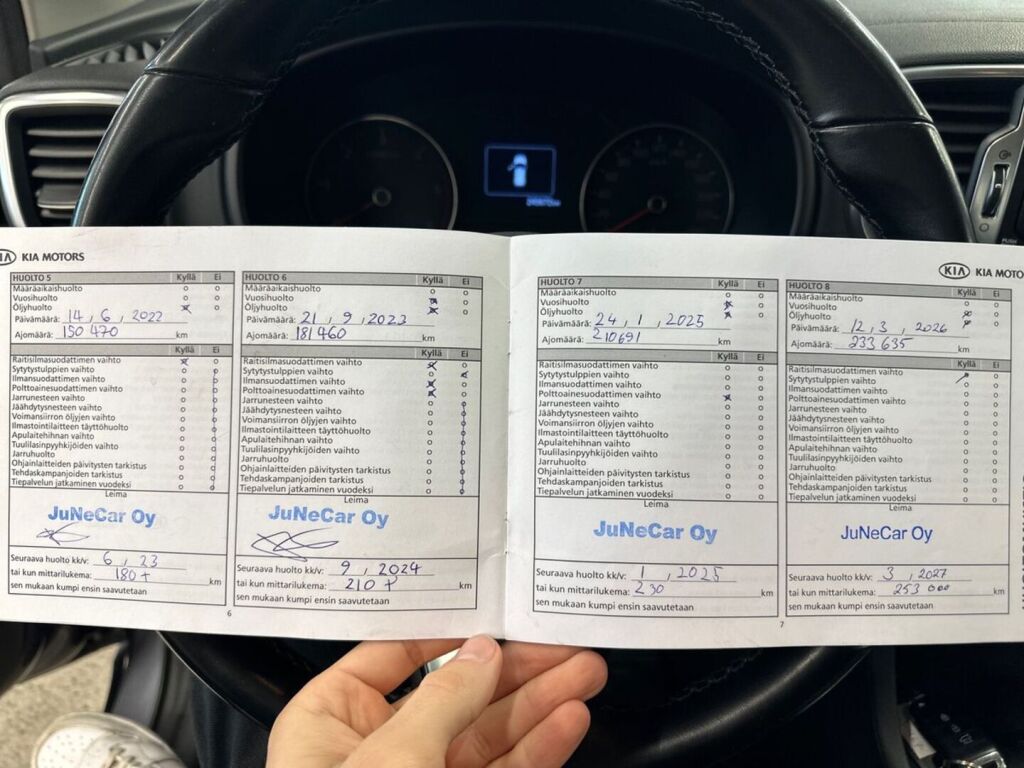 KIA KIA MOTORS
HUOLTO 5 Kyllä Ei
Määräaikaishuolto
Vuosihuolto
Öljyhuolto
Päivämäärä: 14, 6, 2022
Ajomäärä: 150 470 km
Kyllä Ei
Raitisilmasuodattimen vaihto
Sytytystulppien vaihto
Ilmansuodattimen vaihto
Polttoainesuodattimen vaihto
Jarrunesteen vaihto
Jäähdytysnesteen vaihto
Voimansiirron öljyjen vaihto
Ilmastointilaitteen täyttöhuolto
Apulaitehihnan vaihto
Tuulilasinpyyhkijöiden vaihto
Jarruhuolto
Ohjainlaitteiden päivitysten tarkistus
Tehdaskampanjoiden tarkistus
Tiepalvelun jatkaminen vuodeksi
Leima
JuNeCar Oy
Seuraava huolto kk/v: 6, 23
tai kun mittarilukema: 180 + km
sen mukaan kumpi ensin saavutetaan
6
HUOLTO 6 Kyllä Ei
Määräaikaishuolto
Vuosihuolto
Öljyhuolto
Päivämäärä: 21, 9, 2023
Ajomäärä: 181 460 km
Kyllä Ei
Raitisilmasuodattimen vaihto
Sytytystulppien vaihto
Ilmansuodattimen vaihto
Polttoainesuodattimen vaihto
Jarrunesteen vaihto
Jäähdytysnesteen vaihto
Voimansiirron öljyjen vaihto
Ilmastointilaitteen täyttöhuolto
Apulaitehihnan vaihto
Tuulilasinpyyhkijöiden vaihto
Jarruhuolto
Ohjainlaitteiden päivitysten tarkistus
Tehdaskampanjoiden tarkistus
Tiepalvelun jatkaminen vuodeksi
Leima
JuNeCar Oy
Seuraava huolto kk/v: 9, 2024
tai kun mittarilukema: 210 + km
sen mukaan kumpi ensin saavutetaan
HUOLTO 7 Kyllä Ei
Määräaikaishuolto
Vuosihuolto
Öljyhuolto
Päivämäärä: 24, 1, 2025
Ajomäärä: 210691 km
Kyllä Ei
Raitisilmasuodattimen vaihto
Sytytystulppien vaihto
Ilmansuodattimen vaihto
Polttoainesuodattimen vaihto
Jarrunesteen vaihto
Jäähdytysnesteen vaihto
Voimansiirron öljyjen vaihto
Ilmastointilaitteen täyttöhuolto
Apulaitehihnan vaihto
Tuulilasinpyyhkijöiden vaihto
Jarruhuolto
Ohjainlaitteiden päivitysten tarkistus
Tehdaskampanjoiden tarkistus
Tiepalvelun jatkaminen vuodeksi
Leima
JuNeCar Oy
Seuraava huolto kk/v: 1, 2025
tai kun mittarilukema: 230 km
sen mukaan kumpi ensin saavutetaan
7
KIA KIA MOTO
HUOLTO 8 Kyllä Ei
Määräaikaishuolto
Vuosihuolto
Öljyhuolto
Päivämäärä: 12, 3, 2026
Ajomäärä: 233 635 km
Kyllä Ei
Raitisilmasuodattimen vaihto
Sytytystulppien vaihto
Ilmansuodattimen vaihto
Polttoainesuodattimen vaihto
Jarrunesteen vaihto
Jäähdytysnesteen vaihto
Voimansiirron öljyjen vaihto
Ilmastointilaitteen täyttöhuolto
Apulaitehihnan vaihto
Tuulilasinpyyhkijöiden vaihto
Jarruhuolto
Ohjainlaitteiden päivitysten tarkistus
Tehdaskampanjoiden tarkistus
Tiepalvelun jatkaminen vuodeksi
Leima
JuNeCar Oy
Seuraava huolto kk/v: 3, 2027
tai kun mittarilukema: 253 000 km
sen mukaan kumpi ensin saavutetaan